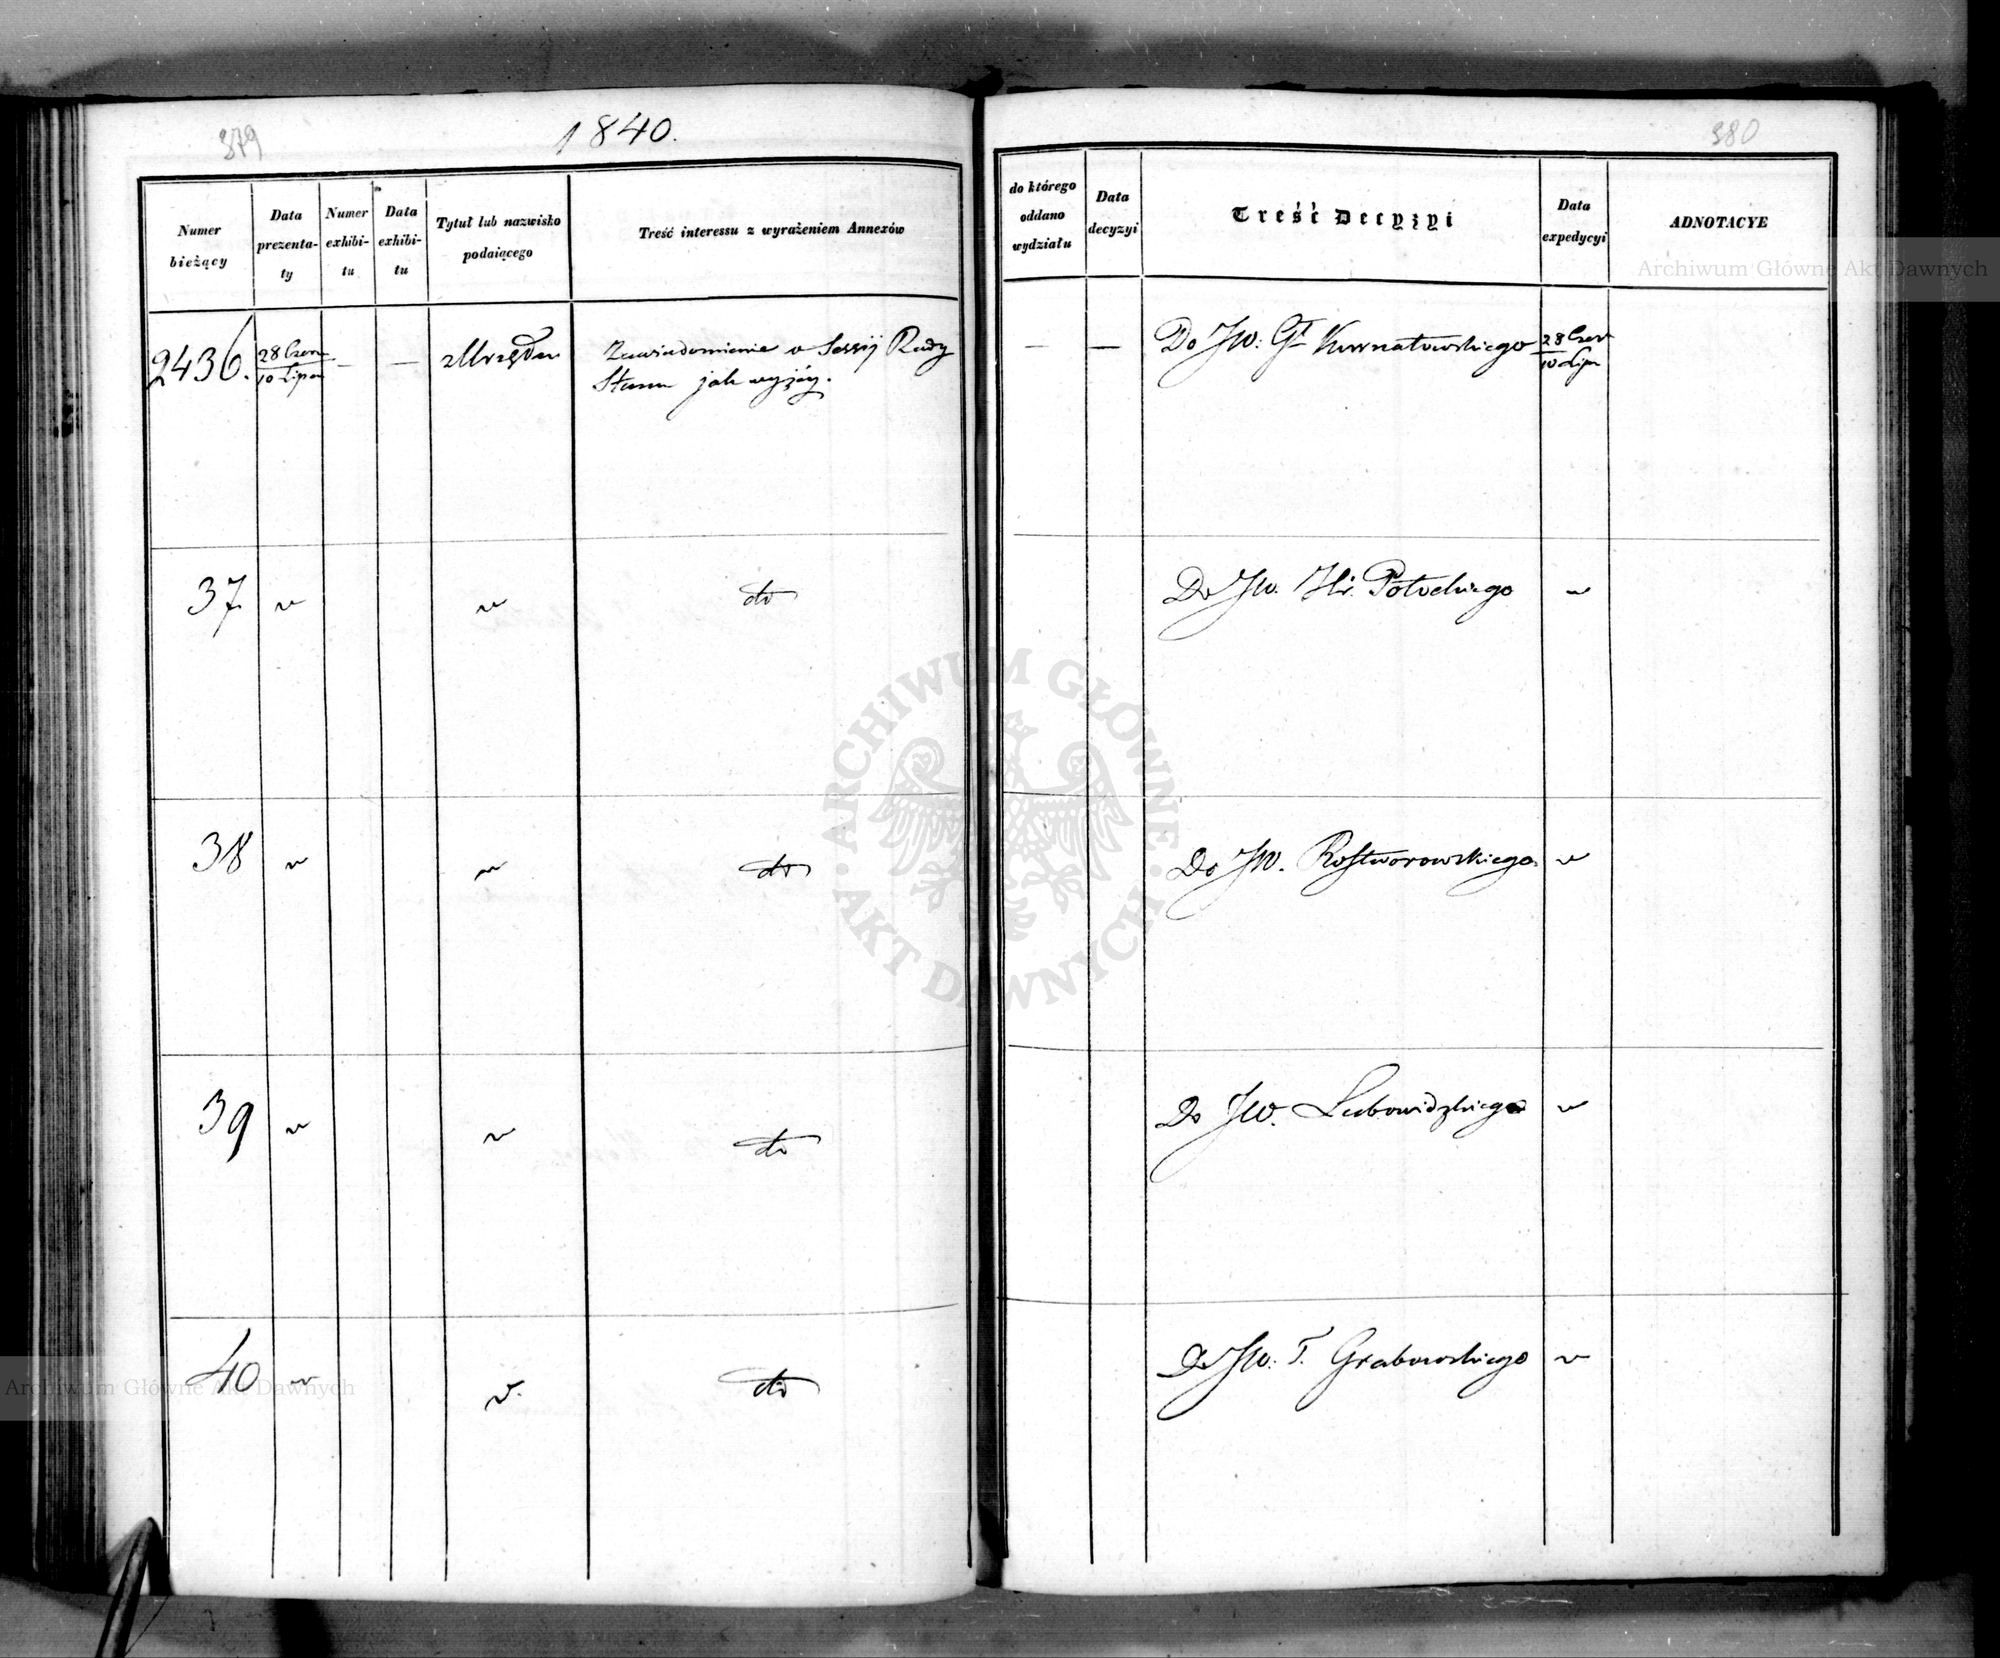 379
1840.
Numer bieżący
Data prezentaty
Numer exhibitu
Data exhibitu
Tytuł lub nazwisko podaiącego
Treść interessu z wyrażeniem Annexów
2436.
28 Czerw
10 Lipca
—
—
z Urzędu
Zawiadomienie o Sessyi Rady
Stanu jak wyżéy.
37
do
38
do
39
do
40
do
380
do którego oddano wydziału
Data decyzyi
Treść Decyzyi
Data expedycyi
ADNOTACYE
—
—
Do JW: Gł Kurnatowskiego
28 Czer
10 Lipca
Do JW. Hr. Potockiego
Do JW. Rostworowskiego
Do JW. Lubowidzkiego
Do JW: T. Grabowskiego
Archiwum Główne Akt Dawnych
ARCHIWUM GŁÓWNE · AKT DAWNYCH ·
Archiwum Główne Akt Dawnych